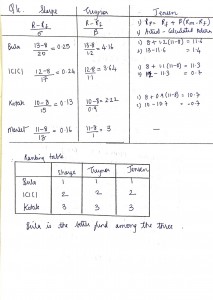 Q4. Sharpe Treynor Jensen
R-Rf / σ R-Rf / β 1) Rp = Rf + β(Rm-Rf)
2) Actual - Calculated Return
Birla 13-8 / 20 = 0.25 13-8 / 1.2 = 4.16 1) 8 + 1.2 (11-8) = 11.6
2) 13-11.6 = 1.4
ICICI 12-8 / 17 = 0.24 12-8 / 1.1 = 3.64 1) 8 + 1.1 (11-8) = 11.3
2) 12-11.3 = 0.7
Kotak 10-8 / 15 = 0.13 10-8 / 0.9 = 2.22 1) 8 + 0.9 (11-8) = 10.7
2) 10-10.7 = -0.7
Market 11-8 / 18 = 0.16 11-8 / 1 = 3 —
Ranking table
Sharpe Treynor Jensen
Birla 1 1 1
ICICI 2 2 2
Kotak 3 3 3
Birla is the better fund among the three.